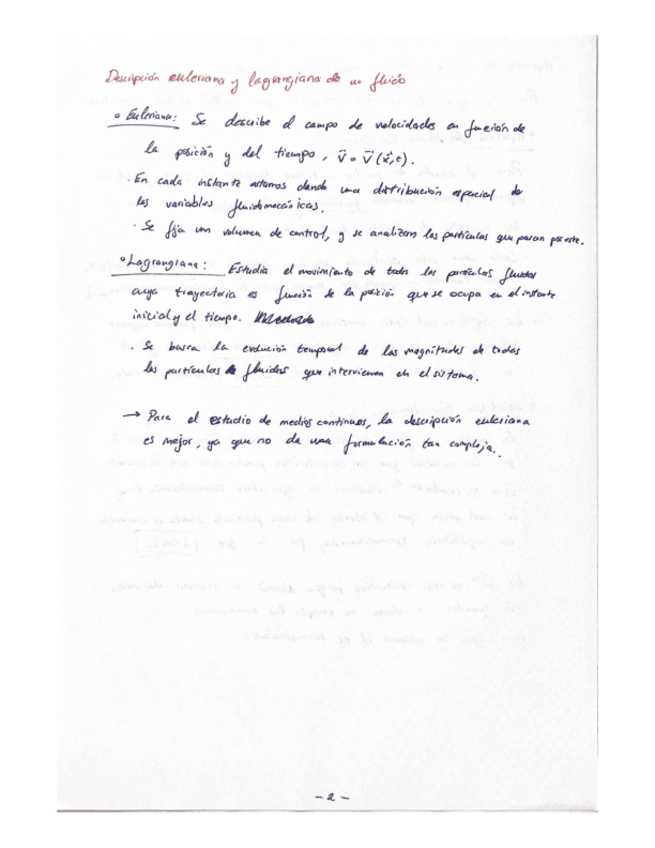 Descripción euleriana y lagrangiana de un fluido
• Euleriana: Se describe el campo de velocidades en función de
la posición y del tiempo, v⃗ = v⃗ (x⃗, t).
· En cada instante estamos dando una distribución espacial de
las variables fluidomecánicas.
· Se fija un volumen de control, y se analizan las partículas que pasan por este.
• Lagrangiana: Estudia el movimiento de todas las partículas fluidas
cuya trayectoria es función de la posición que se ocupa en el instante
inicial y el tiempo.
· Se busca la evolución temporal de las magnitudes de todas
las partículas fluidas que intervienen en el sistema.
→ Para el estudio de medios continuos, la descripción euleriana
es mejor, ya que no da una formulación tan compleja.
- 2 -